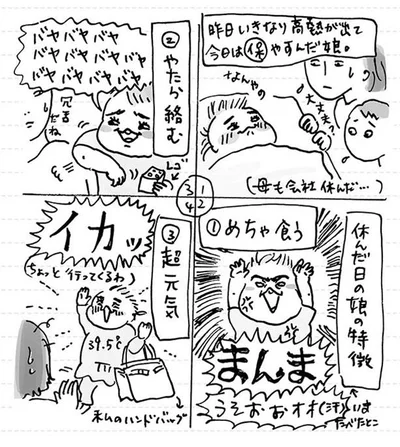 昨日いきなり高熱が出て
今日は保やすんだ娘。
大丈夫?
(母も会社休んだ…)
休んだ日の娘の特徴
①めちゃ食う
まんま
うそぉぉオオ(汗)
いま
たべたとこ
②やたら絡む
バヤバヤバヤ
バヤバヤバヤバヤ
バヤバヤバヤバヤ
レゴ
3 1
4 2
③超元気
イカッ
ちょっと行ってくるわ
39.5℃
私のハンドバッグ